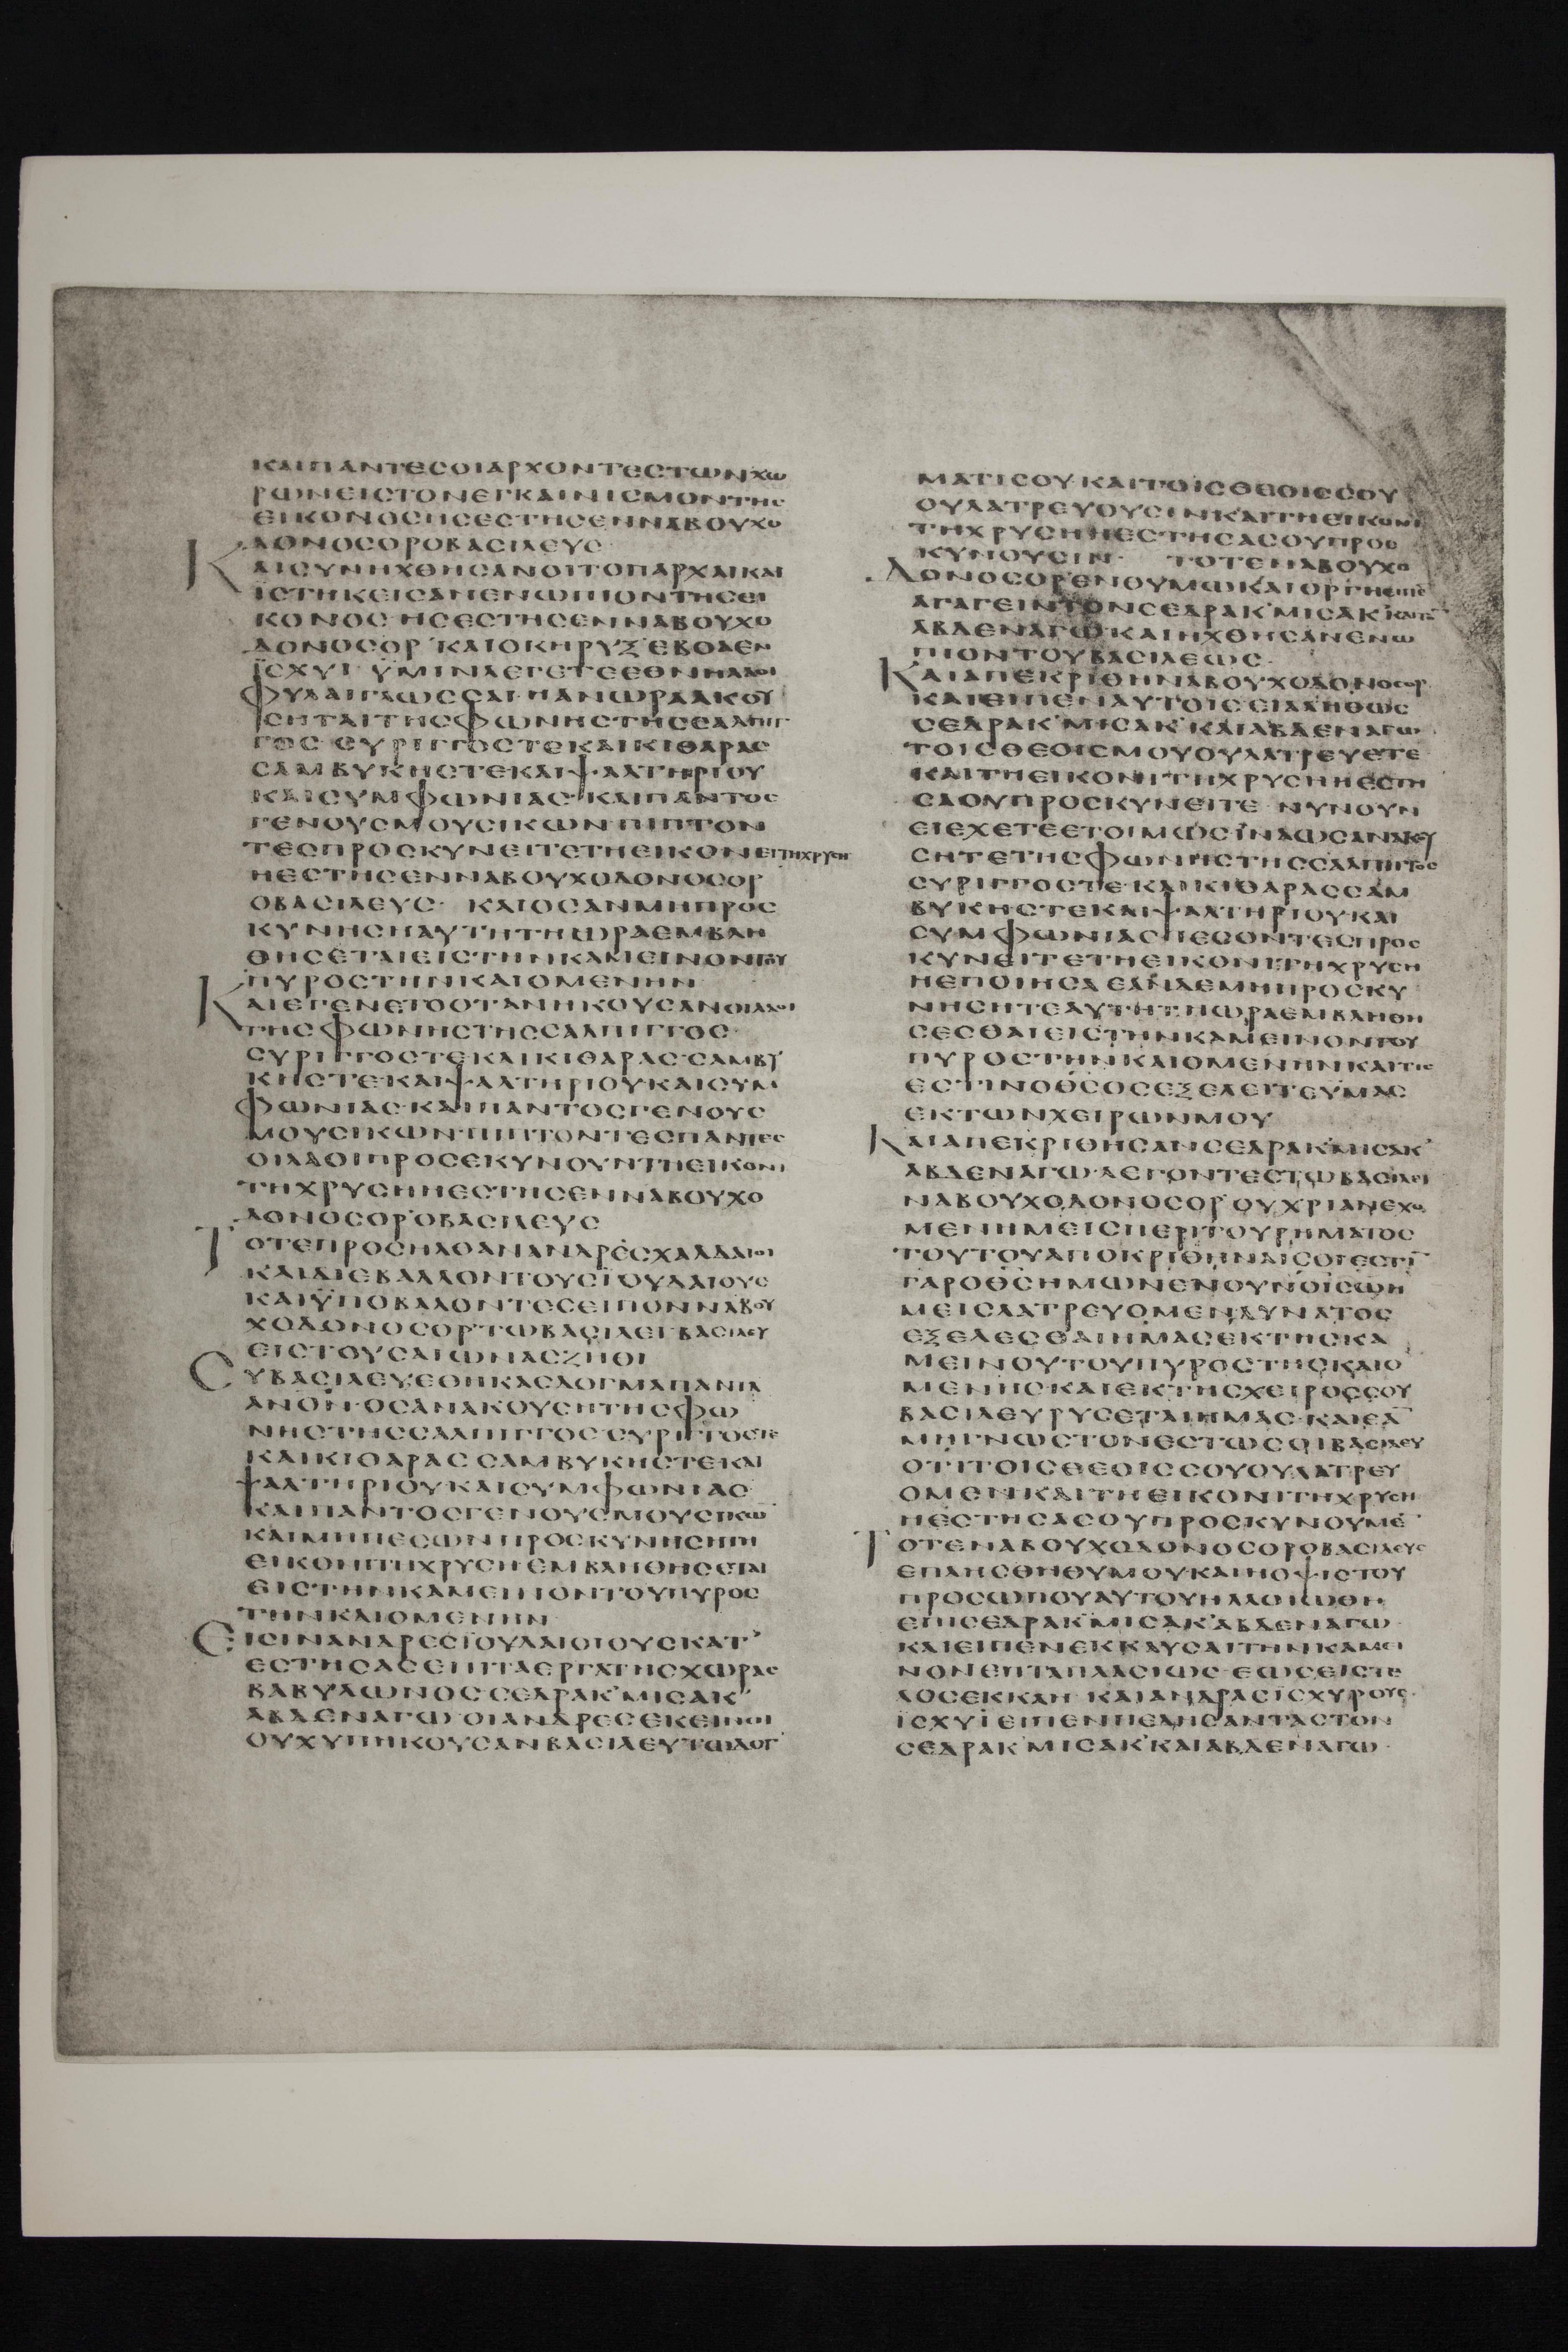 ΚΑΙΠΑΝΤΕΣΟΙΑΡΧΟΝΤΕΣΤΩΝΧΩ
ΡΩΝΕΙΣΤΟΝΕΓΚΑΙΝΙΣΜΟΝΤΗΣ
ΕΙΚΟΝΟΣΗΣΕΣΤΗΣΕΝΝΑΒΟΥΧΟ
ΔΟΝΟΣΟΡΟΒΑΣΙΛΕΥΣ
ΚΑΙΣΥΝΗΧΘΗΣΑΝΟΙΤΟΠΑΡΧΑΙΚΑΙ
ΙΣΤΗΚΕΙΣΑΝΕΝΩΠΙΟΝΤΗΣΕΙ
ΚΟΝΟΣ·ΗΣΕΣΤΗΣΕΝΝΑΒΟΥΧΟ
ΔΟΝΟΣΟΡ ΚΑΙΟΚΗΡΥΞΕΒΟΑΕΝ
ΙΣΧΥΙ ΫΜΙΝΛΕΓΕΤΕΕΘΝΗΛΑΟΙ
ΦΥΛΑΙΓΛΩΣΣΑΙ·ΗΑΝΩΡΑΑΚΟΥ
ΣΗΤΑΙΤΗΣΦΩΝΗΣΤΗΣΣΑΛΠΙΓ
ΓΟΣ ΣΥΡΙΓΓΟΣΤΕΚΑΙΚΙΘΑΡΑΣ
ΣΑΜΒΥΚΗΣΤΕΚΑΙΨΑΛΤΗΡΙΟΥ
ΚΑΙΣΥΜΦΩΝΙΑΣ·ΚΑΙΠΑΝΤΟΣ
ΓΕΝΟΥΣΜΟΥΣΙΚΩΝΠΙΠΤΟΝ
ΤΕΣΠΡΟΣΚΥΝΕΙΤΕΤΗΕΙΚΟΝΕΙΤΗΧΡΥΣΗ
ΗΕΣΤΗΣΕΝΝΑΒΟΥΧΟΔΟΝΟΣΟΡ
ΟΒΑΣΙΛΕΥΣ· ΚΑΙΟΣΑΝΜΗΠΡΟΣ
ΚΥΝΗΣΗΑΥΤΗΤΗΩΡΑΕΜΒΛΗ
ΘΗΣΕΤΑΙΕΙΣΤΗΝΚΑΜΕΙΝΟΝΤΟΥ
ΠΥΡΟΣΤΗΝΚΑΙΟΜΕΝΗΝ
ΚΑΙΕΓΕΝΕΤΟΟΤΑΝΗΚΟΥΣΑΝΟΙΛΑΟΙ
ΤΗΣΦΩΝΗΣΤΗΣΣΑΛΠΙΓΓΟΣ·
ΣΥΡΙΓΓΟΣΤΕΚΑΙΚΙΘΑΡΑΣ·ΣΑΜΒΥ
ΚΗΣΤΕΚΑΙΨΑΛΤΗΡΙΟΥΚΑΙΣΥΜ
ΦΩΝΙΑΣ·ΚΑΙΠΑΝΤΟΣΓΕΝΟΥΣ
ΜΟΥΣΙΚΩΝ·ΠΙΠΤΟΝΤΕΣΠΑΝΤΕΣ
ΟΙΛΑΟΙΠΡΟΣΕΚΥΝΟΥΝΤΗΕΙΚΟΝΙ
ΤΗΧΡΥΣΗΗΕΣΤΗΣΕΝΝΑΒΟΥΧΟ
ΔΟΝΟΣΟΡ·ΟΒΑΣΙΛΕΥΣ
ΤΟΤΕΠΡΟΣΗΛΘΑΝΑΝΔΡΕΣΧΑΛΔΑΙΟΙ
ΚΑΙΔΙΕΒΑΛΛΟΝΤΟΥΣΪΟΥΔΑΙΟΥΣ
ΚΑΙΫΠΟΒΑΛΟΝΤΕΣΕΙΠΟΝΝΑΒΟΥ
ΧΟΔΟΝΟΣΟΡΤΩΒΑΣΙΛΕΙ·ΒΑΣΙΛΕΥ
ΕΙΣΤΟΥΣΑΙΩΝΑΣΖΗΘΙ
ΣΥΒΑΣΙΛΕΥΕΘΗΚΑΣΔΟΓΜΑΠΑΝΤΑ
ΑΝΟΝ·ΟΣΑΝΑΚΟΥΣΗΤΗΣΦΩ
ΝΗΣΤΗΣΣΑΛΠΙΓΓΟΣ·ΣΥΡΙΓΓΟΣΤΕ
ΚΑΙΚΙΘΑΡΑΣ ΣΑΜΒΥΚΗΣΤΕΚΑΙ
ΨΑΛΤΗΡΙΟΥΚΑΙΣΥΜΦΩΝΙΑΣ
ΚΑΙΠΑΝΤΟΣΓΕΝΟΥΣΜΟΥΣΙΚΩ
ΚΑΙΜΗΠΕΣΩΝΠΡΟΣΚΥΝΗΣΗΤΗ
ΕΙΚΟΝΙΤΗΧΡΥΣΗ·ΕΜΒΛΗΘΗΣΕΤΑΙ
ΕΙΣΤΗΝΚΑΜΕΙΝΟΝΤΟΥΠΥΡΟΣ
ΤΗΝΚΑΙΟΜΕΝΗΝ
ΕΙΣΙΝΑΝΔΡΕΣΪΟΥΔΑΙΟΙΟΥΣΚΑΤ
ΕΣΤΗΣΑΣΕΠΙΤΑΕΡΓΑΤΗΣΧΩΡΑΣ
ΒΑΒΥΛΩΝΟΣ ΣΕΔΡΑΚ ΜΙΣΑΚ
ΑΒΔΕΝΑΓΩ ΟΙΑΝΔΡΕΣΕΚΕΙΝΟΙ
ΟΥΧΥΠΗΚΟΥΣΑΝΒΑΣΙΛΕΥΤΩΔΟΓ
ΜΑΤΙΣΟΥ·ΚΑΙΤΟΙΣΘΕΟΙΣΣΟΥ
ΟΥΛΑΤΡΕΥΟΥΣΙΝΚΑΙΤΗΕΙΚΟΝΙ
ΤΗΧΡΥΣΗΗΕΣΤΗΣΑΣΟΥΠΡΟΣ
ΚΥΝΟΥΣΙΝ· ΤΟΤΕΝΑΒΟΥΧΟ
ΔΟΝΟΣΟΡΕΝΘΥΜΩΚΑΙΟΡΓΗΕΙΠΕ
ΑΓΑΓΕΙΝΤΟΝΣΕΔΡΑΚ ΜΙΣΑΚ ΚΑΙ
ΑΒΔΕΝΑΓΩ·ΚΑΙΗΧΘΗΣΑΝΕΝΩ
ΠΙΟΝΤΟΥΒΑΣΙΛΕΩΣ·
ΚΑΙΑΠΕΚΡΙΘΗΝΑΒΟΥΧΟΔΟΝΟΣΟΡ
ΚΑΙΕΙΠΕΝΑΥΤΟΙΣΕΙΑΛΗΘΩΣ
ΣΕΔΡΑΚ ΜΙΣΑΚ ΚΑΙΑΒΔΕΝΑΓΩ
ΤΟΙΣΘΕΟΙΣΜΟΥΟΥΛΑΤΡΕΥΕΤΕ
ΚΑΙΤΗΕΙΚΟΝΙΤΗΧΡΥΣΗΗΕΣΤΗ
ΣΑΟΥΠΡΟΣΚΥΝΕΙΤΕ ΝΥΝΟΥΝ
ΕΙΕΧΕΤΕΕΤΟΙΜΩΣΪΝΑΩΣΑΝΑΚΟΥ
ΣΗΤΕΤΗΣΦΩΝΗΣΤΗΣΣΑΛΠΙΓΓΟΣ
ΣΥΡΙΓΓΟΣΤΕ·ΚΑΙΚΙΘΑΡΑΣΣΑΜ
ΒΥΚΗΣΤΕΚΑΙΨΑΛΤΗΡΙΟΥΚΑΙ
ΣΥΜΦΩΝΙΑΣΠΕΣΟΝΤΕΣΠΡΟΣ
ΚΥΝΕΙΤΕΤΗΕΙΚΟΝΙΤΗΧΡΥΣΗ
ΗΕΠΟΙΗΣΑ ΕΑΝΔΕΜΗΠΡΟΣΚΥ
ΝΗΣΗΤΕΑΥΤΗΤΗΩΡΑΕΜΒΛΗΘΗ
ΣΕΣΘΑΙΕΙΣΤΗΝΚΑΜΕΙΝΟΝΤΟΥ
ΠΥΡΟΣΤΗΝΚΑΙΟΜΕΝΗΝΚΑΙΤΙΣ
ΕΣΤΙΝΟΘΣΟΣΕΞΕΛΕΙΤΕΥΜΑΣ
ΕΚΤΩΝΧΕΙΡΩΝΜΟΥ
ΚΑΙΑΠΕΚΡΙΘΗΣΑΝΣΕΔΡΑΚ ΜΙΣΑΚ
ΑΒΔΕΝΑΓΩ·ΛΕΓΟΝΤΕΣΤΩΒΑΣΙΛΕΙ
ΝΑΒΟΥΧΟΔΟΝΟΣΟΡ ΟΥΧΡΙΑΝΕΧΟ
ΜΕΝΗΜΕΙΣΠΕΡΙΤΟΥΡΗΜΑΤΟΣ
ΤΟΥΤΟΥΑΠΟΚΡΙΘΗΝΑΙΣΟΙ·ΕΣΤΙ
ΓΑΡΟΘΣΗΜΩΝΕΝΟΥΝΟΙΣΩΗ
ΜΕΙΣΛΑΤΡΕΥΟΜΕΝΔΥΝΑΤΟΣ
ΕΞΕΛΕΣΘΑΙΗΜΑΣΕΚΤΗΣΚΑ
ΜΕΙΝΟΥΤΟΥΠΥΡΟΣΤΗΣΚΑΙΟ
ΜΕΝΗΣΚΑΙΕΚΤΗΣΧΕΙΡΟΣΣΟΥ
ΒΑΣΙΛΕΥΡΥΣΕΤΑΙΗΜΑΣ·ΚΑΙΕΑ
ΜΗΓΝΩΣΤΟΝΕΣΤΩΣΟΙΒΑΣΙΛΕΥ
ΟΤΙΤΟΙΣΘΕΟΙΣΣΟΥΟΥΛΑΤΡΕΥ
ΟΜΕΝΚΑΙΤΗΕΙΚΟΝΙΤΗΧΡΥΣΗ
ΗΕΣΤΗΣΑΣΟΥΠΡΟΣΚΥΝΟΥΜΕ
ΤΟΤΕΝΑΒΟΥΧΟΔΟΝΟΣΟΡΟΒΑΣΙΛΕΥΣ
ΕΠΛΗΣΘΗΘΥΜΟΥΚΑΙΗΟΨΙΣΤΟΥ
ΠΡΟΣΩΠΟΥΑΥΤΟΥΗΛΛΟΙΩΘΗ
ΕΠΙΣΕΔΡΑΚ ΜΙΣΑΚ ΑΒΔΕΝΑΓΩ
ΚΑΙΕΙΠΕΝΕΚΚΑΥΣΑΙΤΗΝΚΑΜΕΙ
ΝΟΝΕΠΤΑΠΛΑΣΙΩΣ·ΕΩΣΕΙΣΤΕ
ΛΟΣΕΚΚΑΗ ΚΑΙΑΝΔΡΑΣΪΣΧΥΡΟΥΣ
ΪΣΧΥΪΕΙΠΕΝΠΕΔΗΣΑΝΤΑΣΤΟΝ
ΣΕΔΡΑΚ ΜΙΣΑΚ ΚΑΙΑΒΔΕΝΑΓΩ·